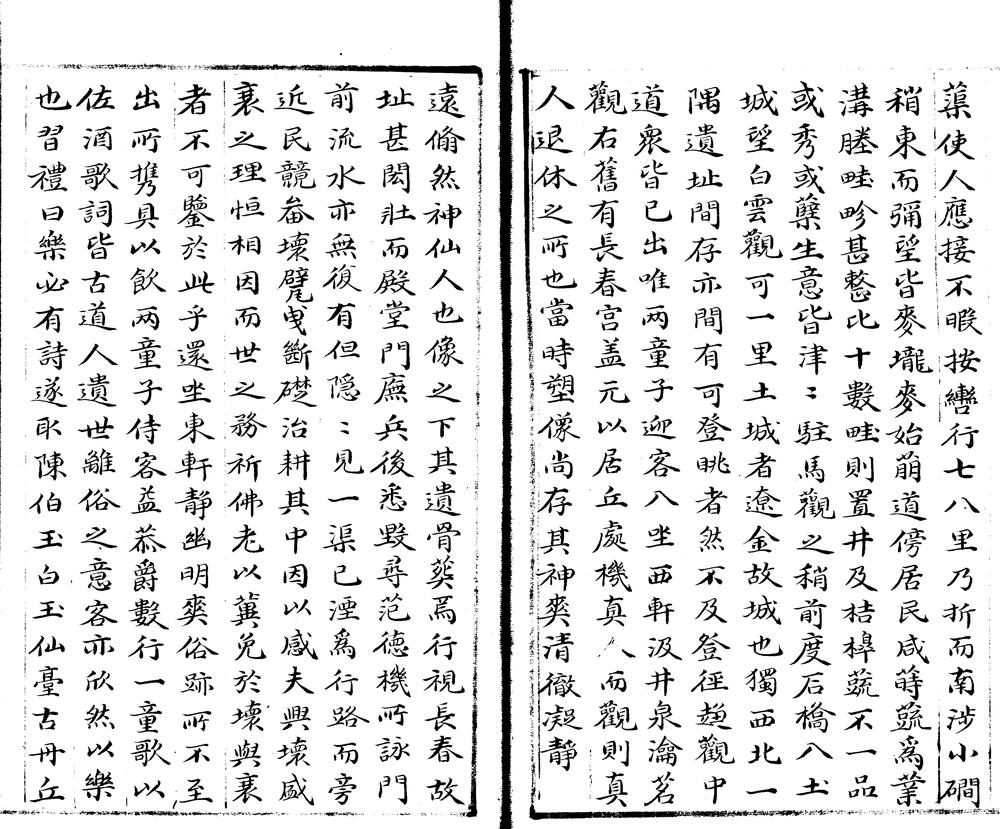 蕖使人應接不暇按轡行七八里乃折而南涉小磵
稍東而彌望皆麥壠麥始萠道傍居民咸蒔蔬爲業
溝塍畦畛甚整比十數畦則置井及桔槔蔬不一品
或秀或蘖生意皆津〻駐馬觀之稍前度石橋入土
城望白雲觀可一里土城者遼金故城也獨西北一
隅遺址間存亦間有可登眺者然不及登徑趨觀中
道衆皆已出唯两童子迎客入坐西軒汲井泉瀹茗
觀右舊有長春宫盖元以居丘處機真人而觀則真
人退休之所也當時塑像尚存其神爽清徹凝静
遠翛然神仙人也像之下其遺骨葬焉行視長春故
址甚閎壯而殿堂門廡兵後悉毁尋范德機所詠門
前流水亦無復有但隐〻見一渠已湮爲行路而旁
近民競畚壞甓曳斷礎治耕其中因以感夫興壞盛
衰之理恒相因而世之務祈佛老以冀免於壞與衰
者不可鑒於此乎還坐東軒静幽明爽俗跡所不至
出所携具以飲两童子侍客益恭爵數行一童歌以
佐酒歌詞皆古道人遺世離俗之意客亦欣然以樂
也習禮曰樂必有詩遂取陳伯玉白玉仙臺古丹丘